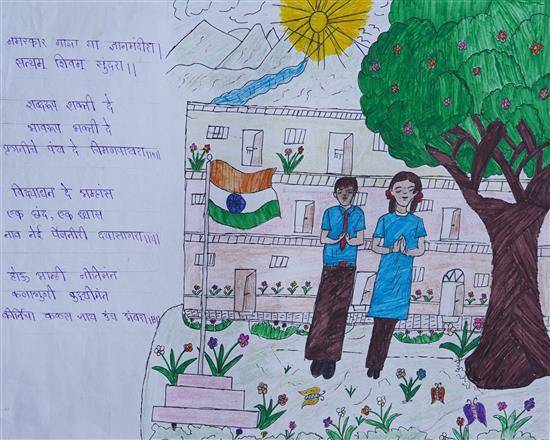 नमस्कार माझा या ज्ञानमंदीरा।
सत्यम शिवम सुंदरा।।
शब्दरूप शक्ती दे
भावरूप भक्ती दे
प्रगतीचे पंख दे चिमणपाखरा॥१॥
विद्याधन दे आम्हांस
एक छंद, एक ध्यास
नाव नेई पैलतीरी दयासागरा॥२॥
होऊ आम्ही नीतिमंत
कलागुणी बुध्दीमंत
कीर्तिचा कळस जाय उंच अंबरा॥३॥